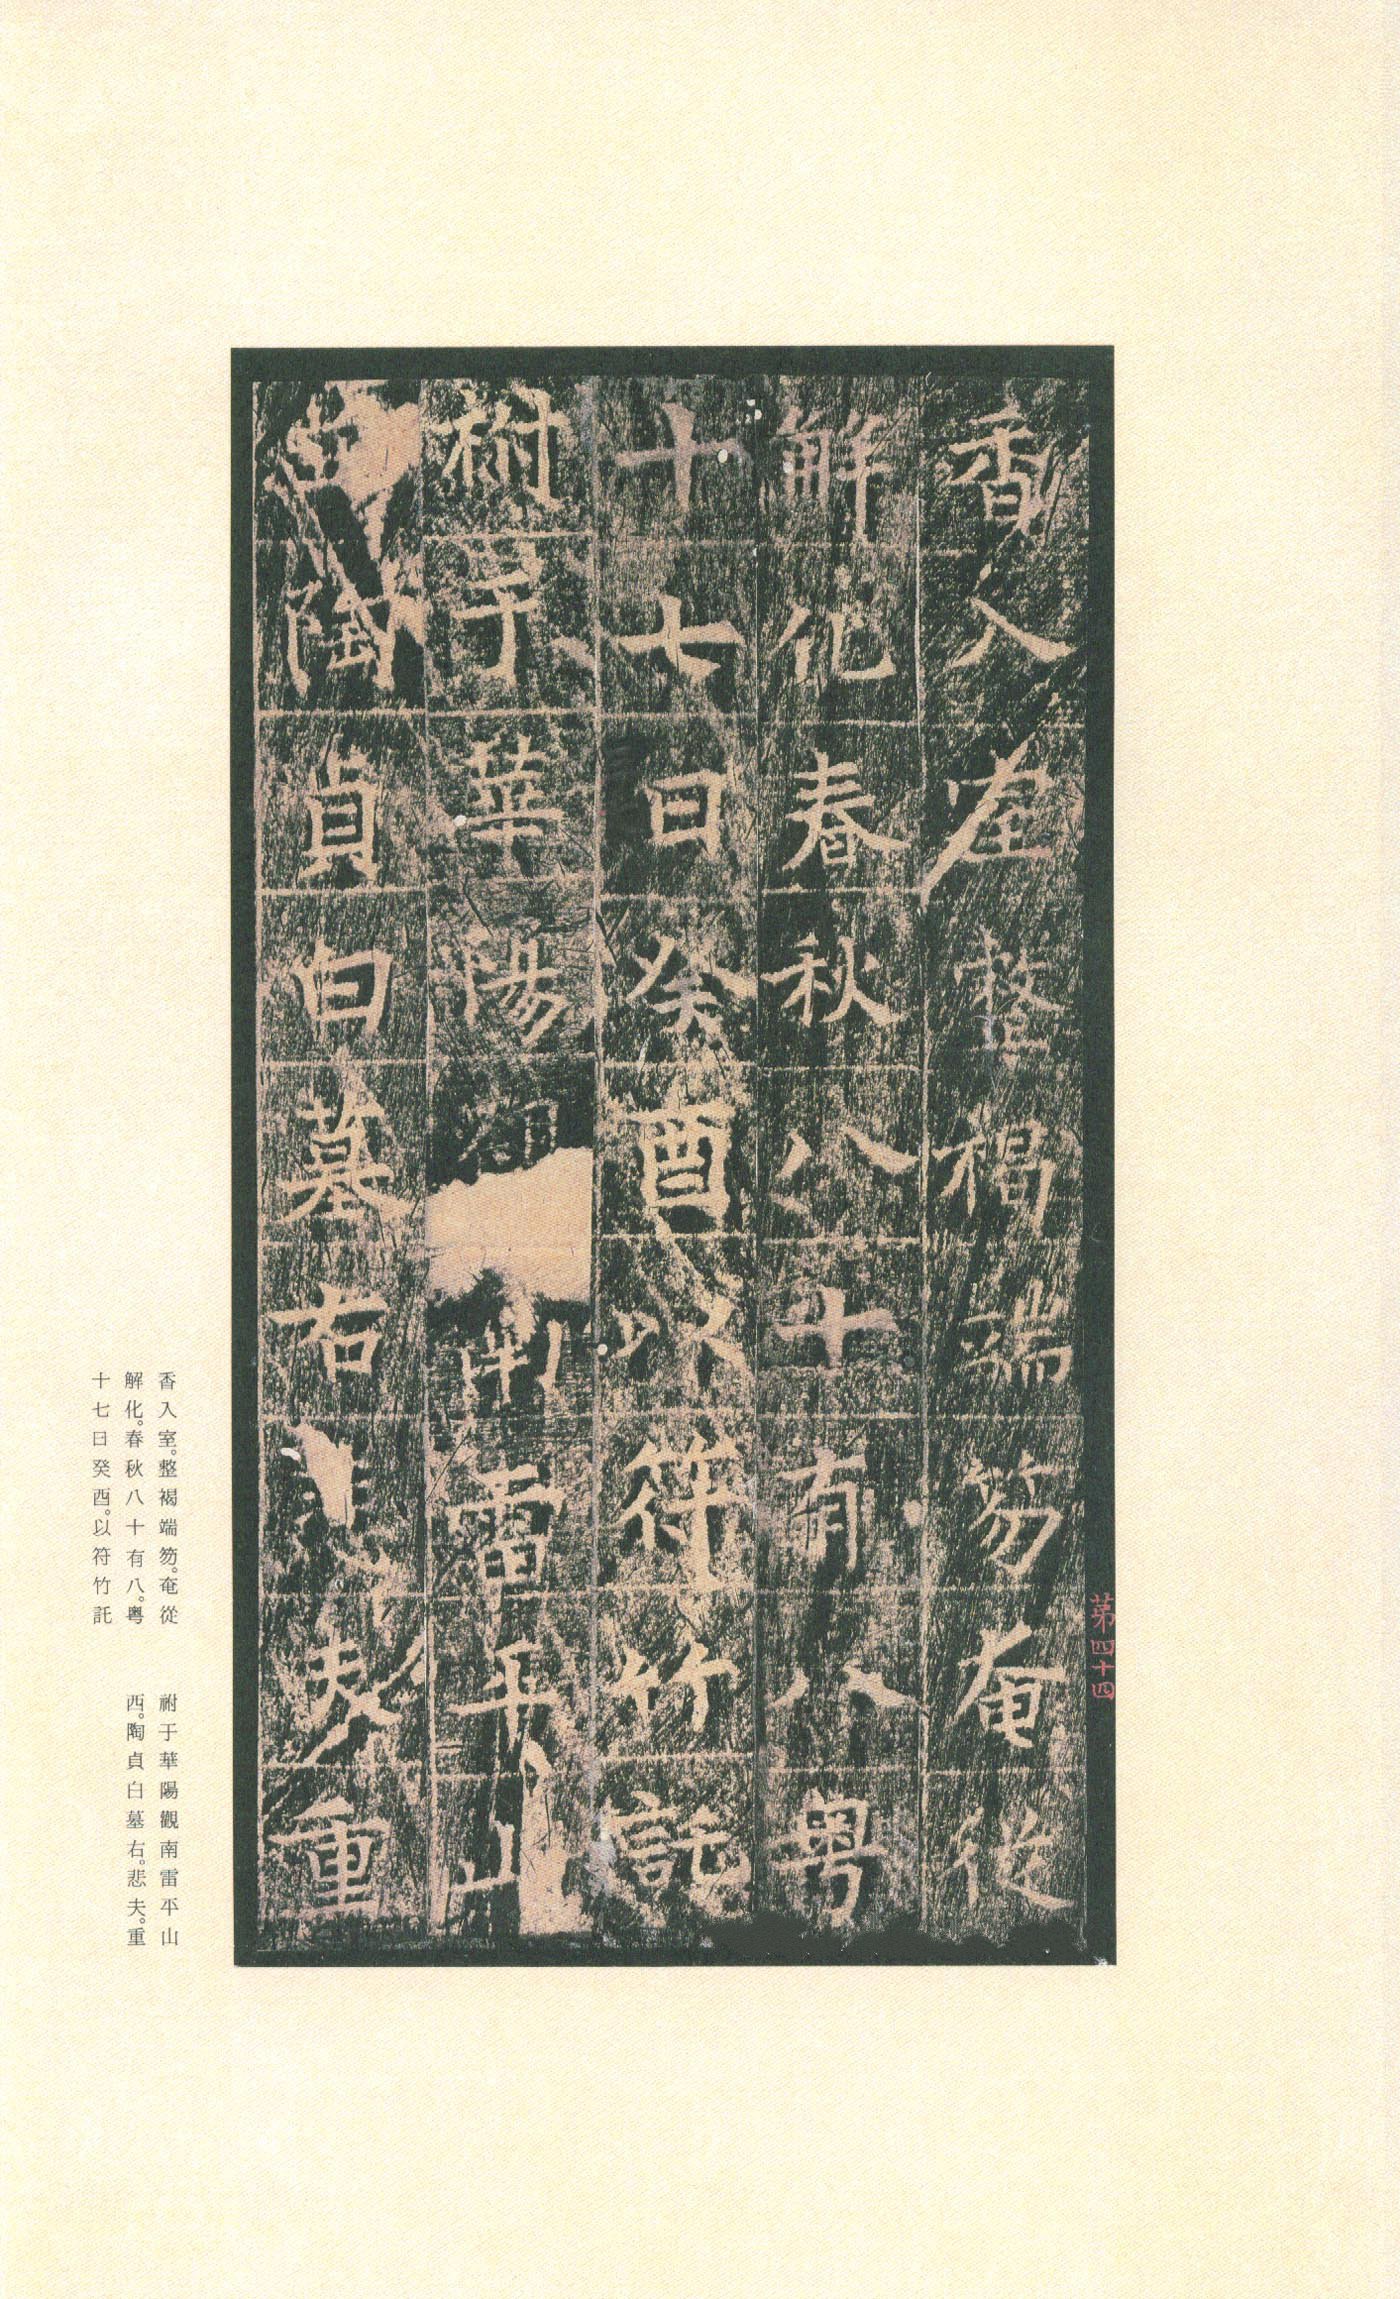 香入室整褐端笏奄從
解化春秋八十有八粵
十七日癸酉以符竹託
祔于華陽觀南雷平山
西陶貞白墓右悲夫重
第四十四
香入室。整褐端笏。奄從
解化。春秋八十有八。粵
十七日癸酉。以符竹託
祔于華陽觀南雷平山
西。陶貞白墓右。悲夫。重